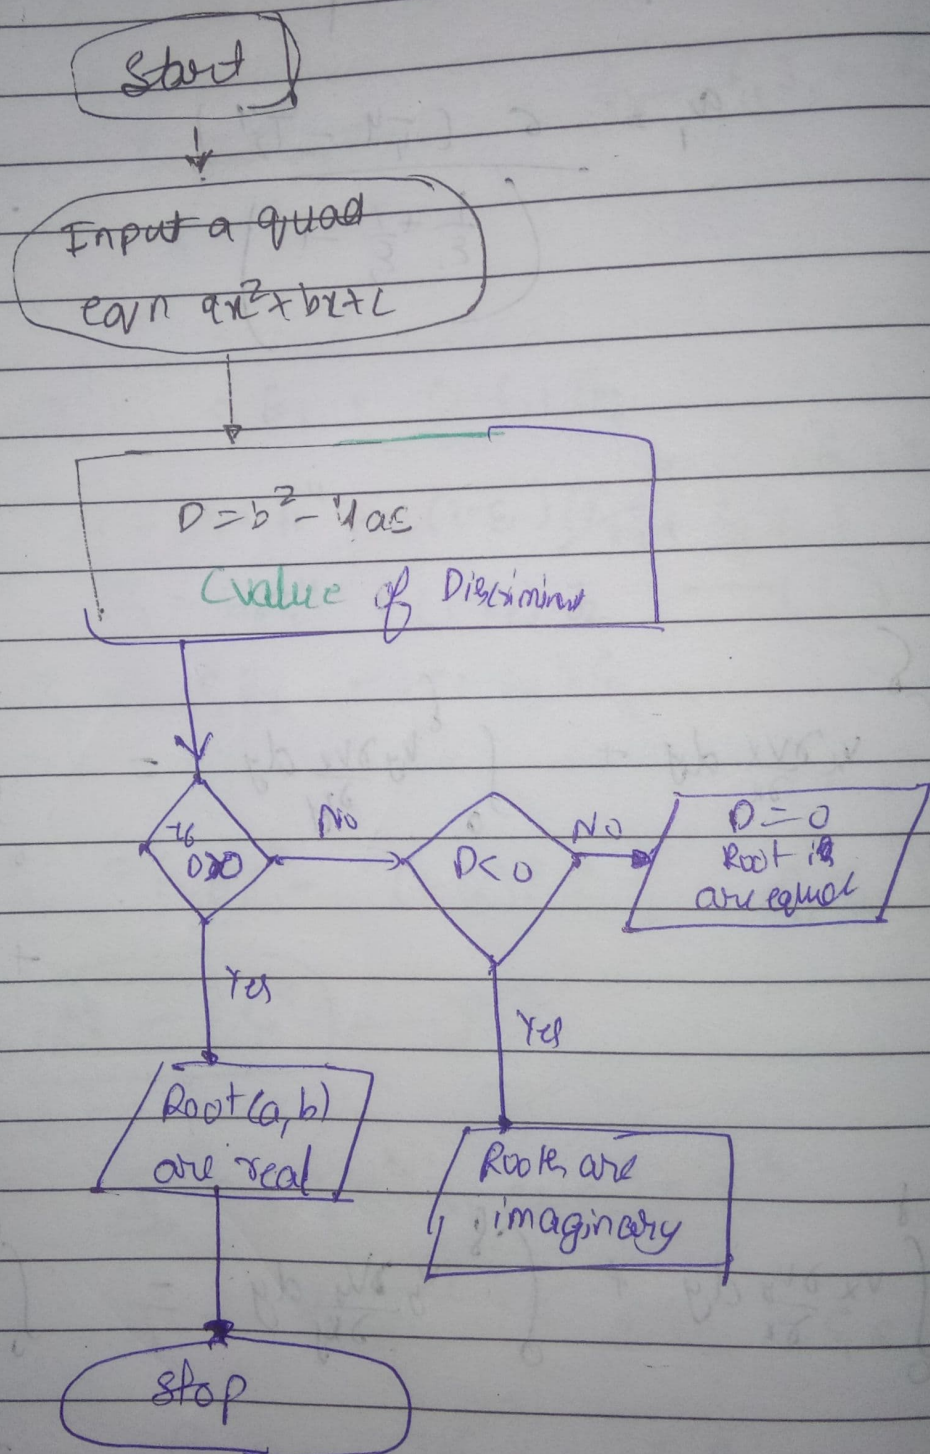 Start
Input a quad
eqn ax²+bx+c
D=b²-4ac
(value of Discriminant
If
D>0
No
D<0
No
D=0
Root is
are equal
Yes
Yes
Root(a,b)
are real
Roots are
imaginary
Stop